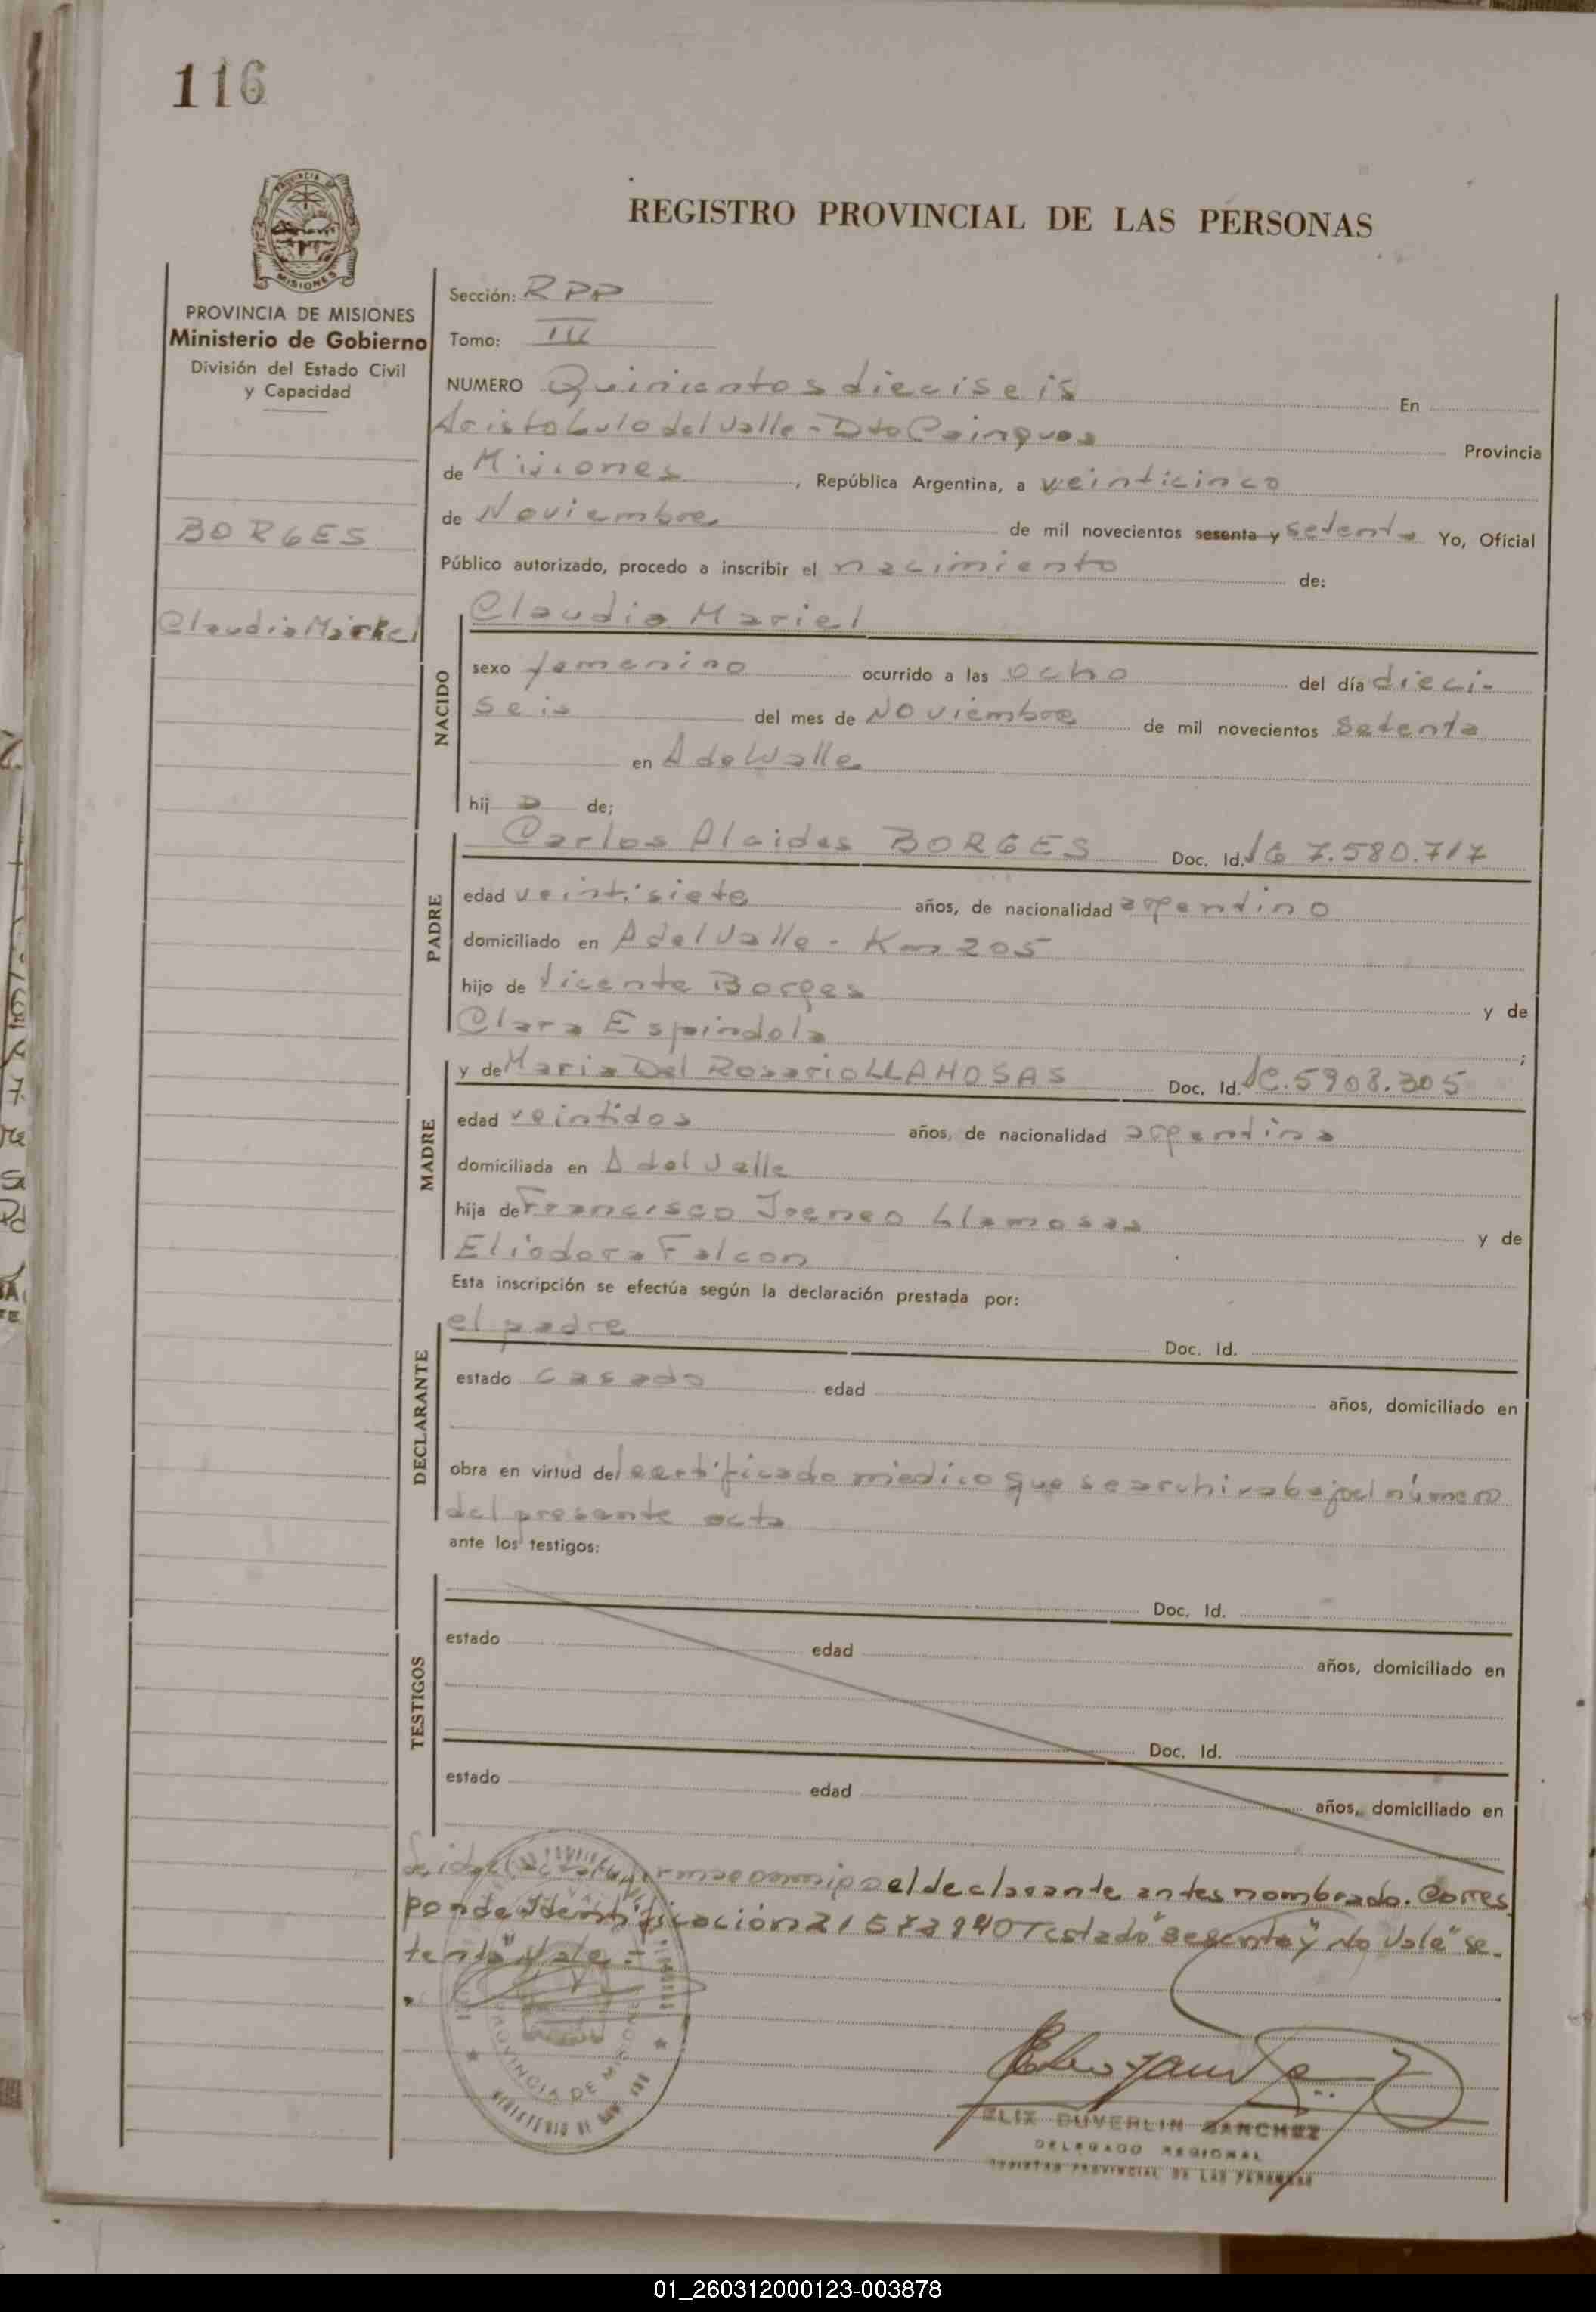 116
REGISTRO PROVINCIAL DE LAS PERSONAS
PROVINCIA DE MISIONES
Ministerio de Gobierno
División del Estado Civil
y Capacidad
BORGES
Claudia Mariel
Sección: RPP
Tomo: III
NUMERO Quinientos dieciseis En
Aristobulo del Valle - Dto Cainguas Provincia
de Misiones, República Argentina, a veinticinco
de Noviembre de mil novecientos sesenta y setenta Yo, Oficial
Público autorizado, procedo a inscribir el nacimiento de:
Claudia Mariel
NACIDO
sexo femenino ocurrido a las ocho del día dieci-
seis del mes de Noviembre de mil novecientos setenta
en A del Valle
hij a de;
PADRE
Carlos Alcides BORGES Doc. Id. 7.580.717
edad veintisiete años, de nacionalidad argentino
domiciliado en A del Valle - Km 205
hijo de Vicente Borges y de
Clara Espindola ;
MADRE
y de Maria Del Rosario LLAMOSAS Doc. Id. LC. 5908.305
edad veintidos años, de nacionalidad argentina
domiciliada en A del Valle
hija de Francisco Llamosas y de
Eliodora Falcon
Esta inscripción se efectúa según la declaración prestada por:
DECLARANTE
el padre Doc. Id.
estado casado edad años, domiciliado en
obra en virtud del certificado médico que se archiva bajo el número
del presente acta
ante los testigos:
TESTIGOS
Doc. Id.
estado edad años, domiciliado en
Doc. Id.
estado edad años, domiciliado en
Leida el acta la firma conmigo el declarante antes nombrado. Corres
ponde Identificación 21572940 Testado "sesenta y" No Vale "se-
tenta" Vale
PROVINCIA DE MISIONES
ELIX DUVERLIN SANCHEZ
DELEGADO REGIONAL
REGISTRO PROVINCIAL DE LAS PERSONAS
01_260312000123-003878